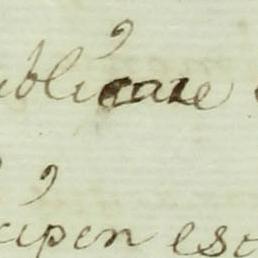 ublicare
cipen est